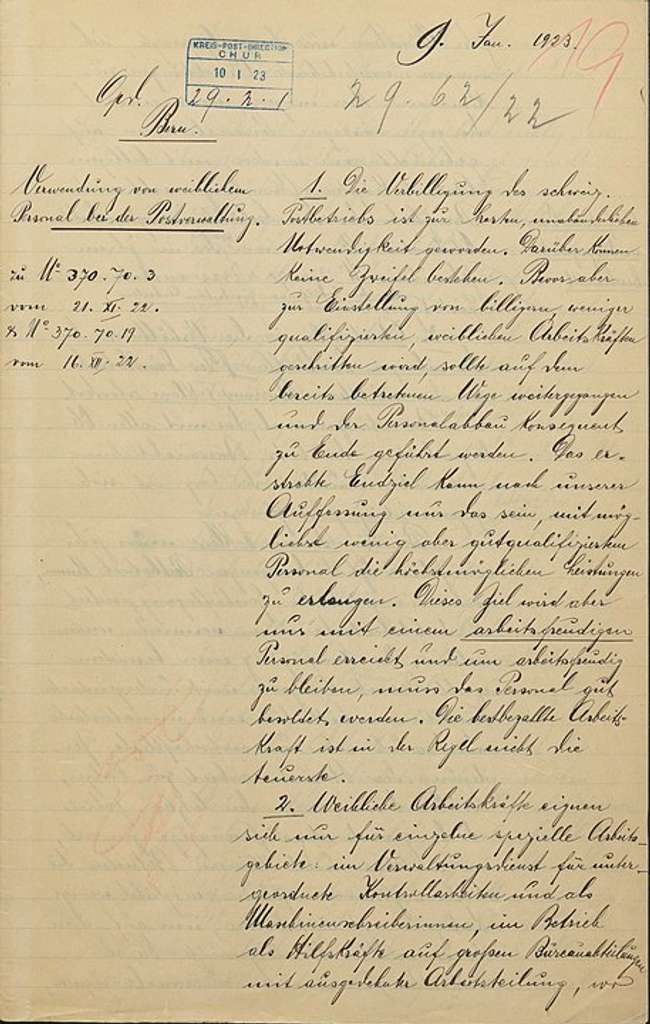 9. Jan. 1923.
19
KREIS-POST-DIRECTION
CHUR
10 I 23
29.2.1
29.62/22
Opd.
Bern.
Verwendung von weiblichem
Personal bei der Postverwaltung.
zu No 370.70.3
vom 21. XI. 22.
& No 370.70.19
vom 16. XII. 22.
1. Die Verbilligung des schweiz.
Postbetriebs ist zur harten, unabänderlichen
Notwendigkeit geworden. Darüber können
keine Zweifel bestehen. Bevor aber
zur Einstellung von billigern, weniger
qualifizierten, weiblichen Arbeitskräften
geschritten wird, sollte auf dem
bereits betretenen Wege weitergegangen
und der Personalabbau konsequent
zu Ende geführt werden. Das er-
strebte Endziel kann nach unserer
Auffassung nur das sein, mit mög-
lichst wenig aber gutqualifiziertem
Personal die höchstmöglichen Leistungen
zu erlangen. Dieses Ziel wird aber
nur mit einem arbeitsfreudigen
Personal erreicht und um arbeitsfreudig
zu bleiben, muss das Personal gut
besoldet werden. Die bestbezahlte Arbeits-
kraft ist in der Regel nicht die
teuerste.
2. Weibliche Arbeitskräfte eignen
sich nur für einzelne spezielle Arbeits-
gebiete: im Verwaltungsdienst für unter-
geordnete Kontrollarbeiten und als
Maschinenschreiberinnen, im Betrieb
als Hilfskräfte auf großen Büreauabteilungen
mit ausgedehnter Arbeitsteilung, wo